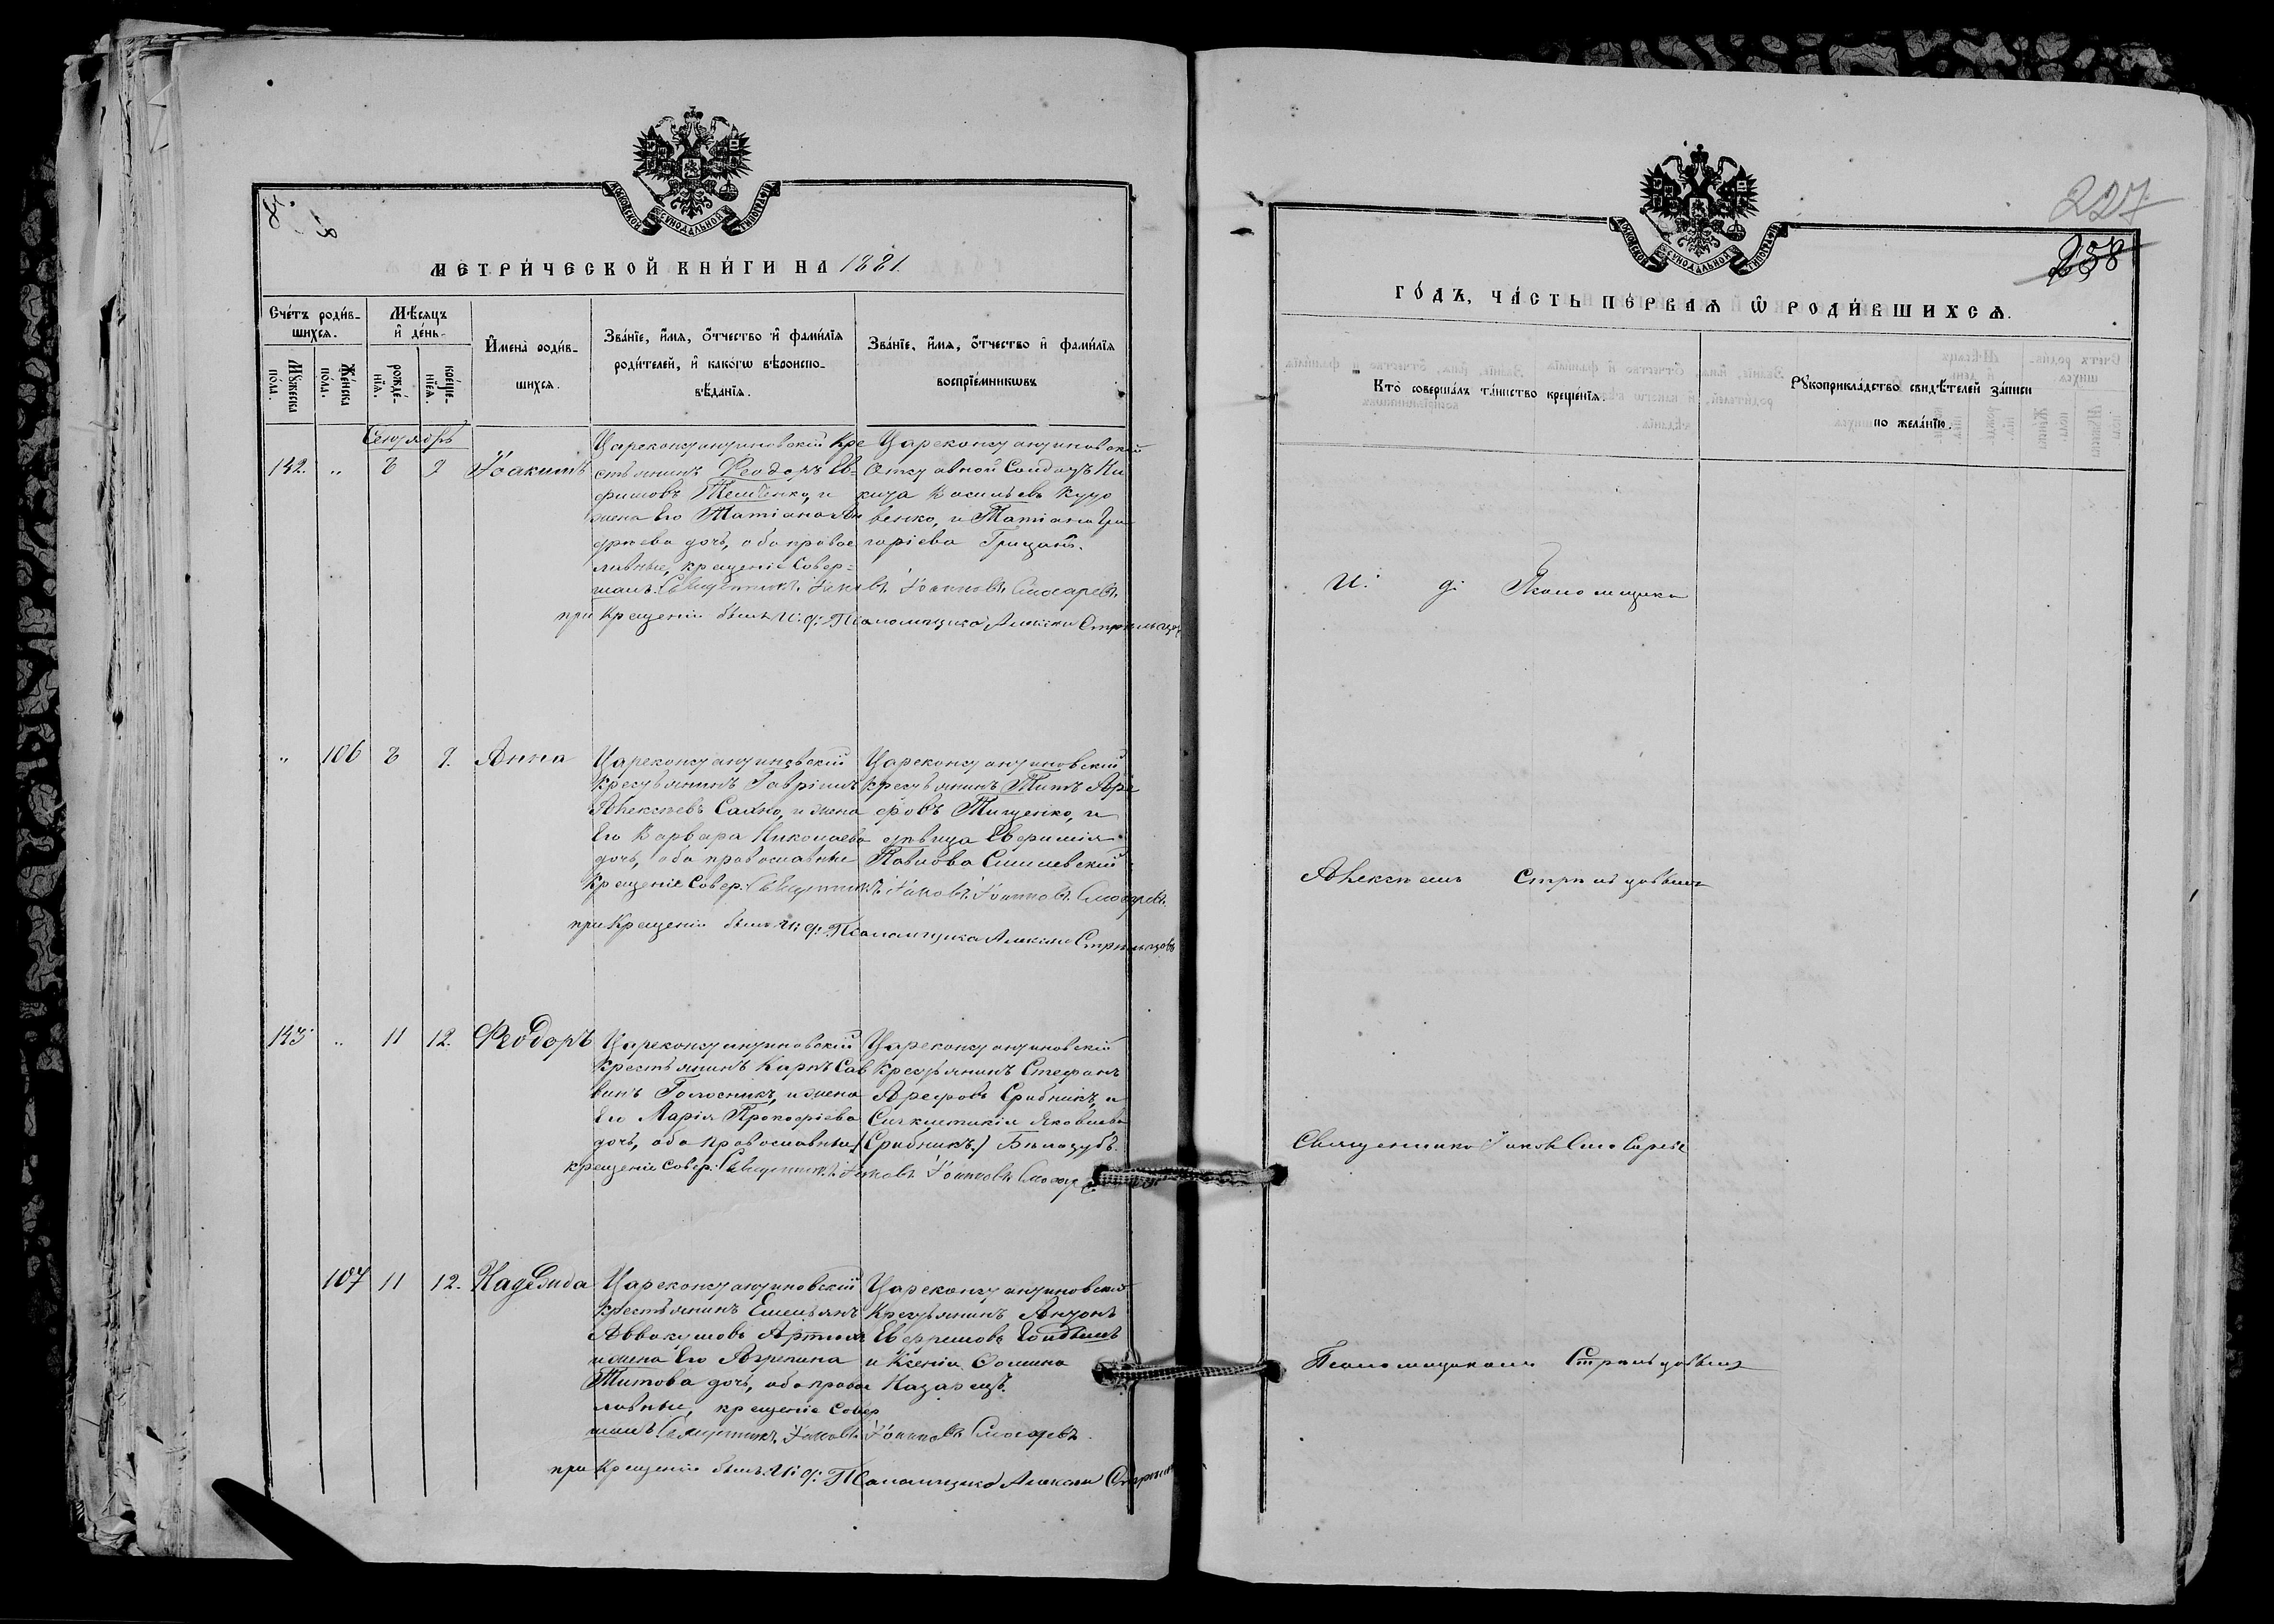 МОСКОВСКОЙ СѴНОДАЛЬНОЙ ТИПОГРАФІИ
МЕТРИ́ЧЕСКОЙ КНИ́ГИ НА 1881.
Сче́тъ роди́в-
шихсѧ.
Мꙋ́жеска пола.
Же́нска пола.
Мѣ́сѧцъ
и҆ де́нь.
рожде́-
нїѧ.
креще́-
нїѧ.
И҆мена̀ роди́в-
шихсѧ.
Зва́нїе, и҆́мѧ, о҆́тчество и҆ фами́лїѧ
роди́телей, и҆ како́гѡ вѣроиспо-
вѣ́данїѧ.
Зва́нїе, и҆́мѧ, о҆́тчество и҆ фами́лїѧ
воспрїе́мникѡвъ
Сентябрь
142. " 8 9 Іоакимъ
Цареконстантиновскій Кре
стьянинъ Феодоръ Ев-
фимовъ Темченко, и
жена Его Татіана Ан
дреева дочь, оба правос
лавные, крещеніе Совер-
шалъ: Священникъ Іаковъ Іоанновъ Слюсаревъ.
при Крещеніи былъ И: д: Псаломщика Алексѣй Стрѣльцовъ
Цареконстантиновскій
Отставной Солдатъ Ни
кита Васильевъ Куцо
венко, и Татіана Гри
горіева Грицай.
" 106 8 9. Анна
Цареконстантиновскій
Крестьянинъ Гавріилъ
Алексѣевъ Сахно, и жена
Его Варвара Николаева
дочь, оба православные
Крещеніе Совер: Священникъ Іаковъ Іоанновъ Слюсаревъ.
при Крещеніи былъ И: д: Псаломщика Алексѣй Стрѣльцовъ
Цареконстантиновскій
крестьянинъ Титъ Аре
фовъ Тищенко, и
дѣвица Евфимія
Павлова
143 " 11 12. Феодоръ
Цареконстантиновскій
Крестьянинъ Карпъ Сав
винъ Голосникъ, и жена
Его Марія Прокофіева
дочь, оба православные
крещеніе Совер: Священникъ Іаковъ Іоанновъ
Цареконстантиновскій
Крестьянинъ Стефанъ
Арефовъ Срибникъ, и
Синклитикія Яковлева
(Срибникъ) Бѣлозубъ.
107 11 12. Надежда
Цареконстантиновскій
Крестьянинъ Емельянъ
Аввакумовъ Артюхъ
и жена Его Агрепина
Титова дочь, оба правос
лавные, крещеніе Совер
шалъ: Священникъ Іаковъ Іоанновъ Слюсаревъ.
при Крещеніи былъ: И: д: Псаломщика Алексѣй
Цареконстантиновскій
Крестьянинъ Антонъ
Евфимовъ
и Ксенія Фомина
Казарецъ.
МОСКОВСКОЙ СѴНОДАЛЬНОЙ ТИПОГРАФІИ
227
258
ГО́ДЪ, ЧА́СТЬ ПЕ́РВАѦ Ѡ҆ РОДИ́ВШИХСѦ.
Кто̀ соверша́лъ та́инство креще́нїѧ.
Рꙋкоприкла́дство свидѣ́телей за́писи
по жела́нїю.
И. д: Псаломщика
Алексѣемъ Стрѣльцовымъ
Священника Іаков
Псаломщикомъ Стрѣльцовымъ